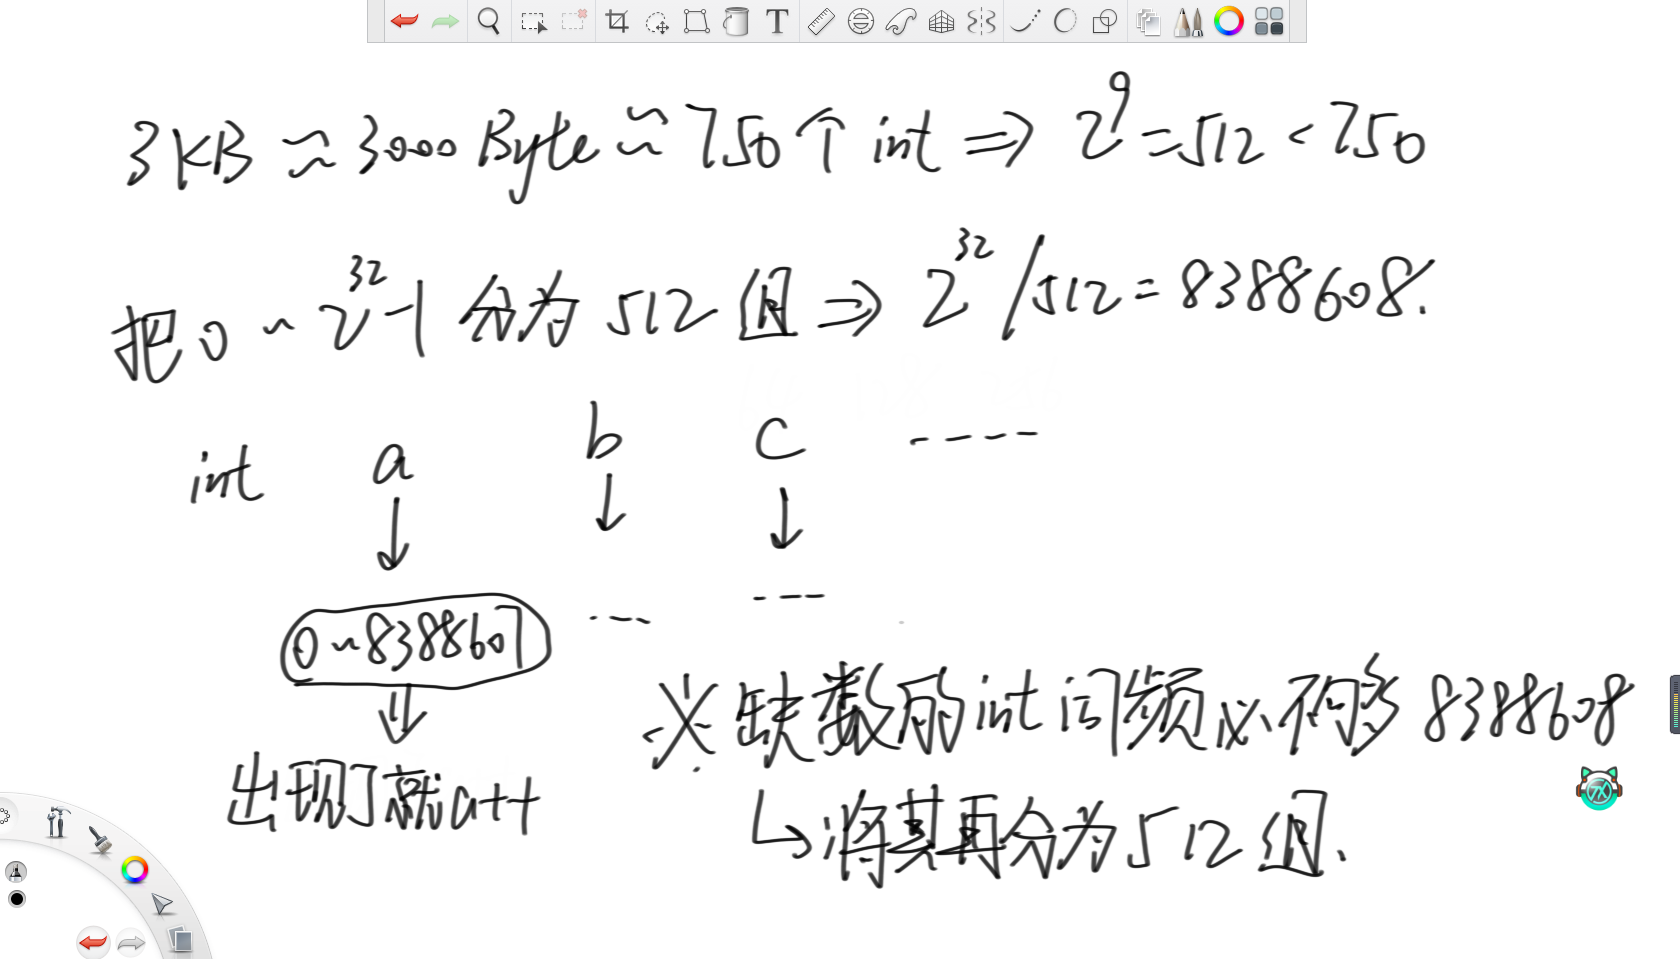 3KB ≈ 3000 Byte ≈ 750个 int ⇒ 2^9 = 512 < 750
把 0 ~ 2^32-1 分为 512 组 ⇒ 2^32 / 512 = 8388608.
int a b c ----
0 ~ 8388607 --- ---
出现了就a++
※ 缺数的int词频必不够 8388608
↳ 将其再分为 512 组.
T
7X